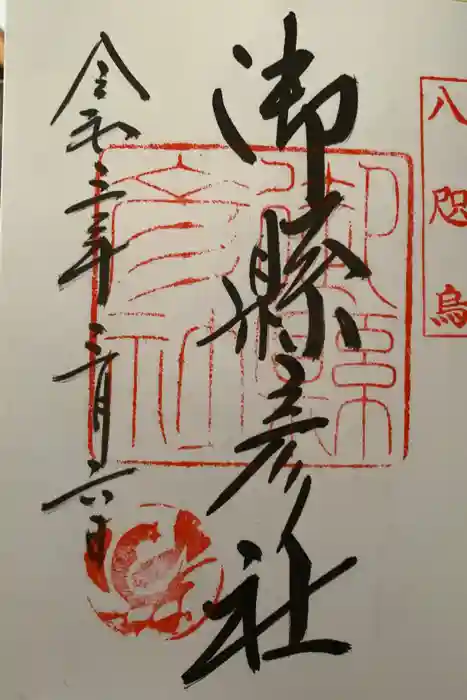 八咫烏
御縣彦社
令和三年三月六日